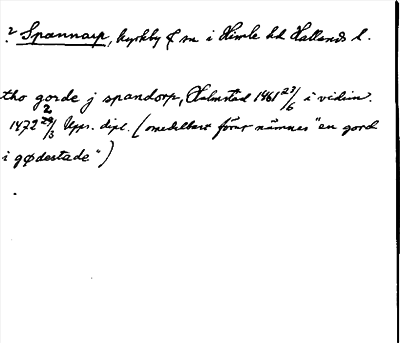 ? Spannarp, kyrkby & sn i Himle hd Hallands l.
tho gorde j spandorp, Halmstad 1461 23/6 i vidim.
1472 29/3 Upps. dipl. (omedelbart förut nämnes "en gord
i gødestade")